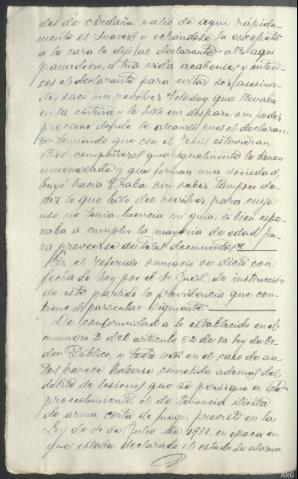 des de cerdaña salió de aquí rápida-
mente el Jesús y echándose la escopeta
a la cara le dijo al declarante alto aquí
ó tu vida acabose, y enton-
ces el declarante para evitar ser asesina-
do sacó un revólver Velodog que llevaba
en la cintura y le hizo un disparo sin poder
precisar después le alcanzó pues el declaran-
te temiendo que con el Jesús estuvieran
otros compañeros que igualmente le tienen
amenazado y que forman una sociedad,
huyó hacia sin saber tampoco de-
cir lo que hizo del revólver, para cuyo
uso no tenía licencia ni guía si bien espe-
raba a cumplir la mayoría de edad pa-
ra proveerse de tales documentos
En el referido sumario se dictó con
fecha de hoy por el Sr. Juez de instrucción
de este partido la providencia que con-
tiene el particular siguiente
De conformidad a lo establecido en el
número 2 del artículo 52 de la ley de Or-
den Público, y toda vez en el caso de au-
tos parece haberse cometido además del
delito de lesiones que se persigue en este
procedimiento el de tenencia ilícita
de arma corta de fuego previsto en la
Ley de 4 de Julio de 1933 en época en
que estaba declarado el estado de alarma
ARG